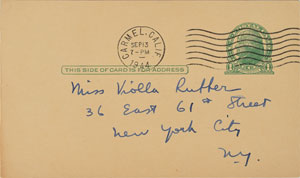 CARMEL, CALIF.
SEP 13
7-PM
1944
THIS SIDE OF CARD IS FOR ADDRESS
Miss Viola Rubber
36 East 61st Street
New York City
N.Y.